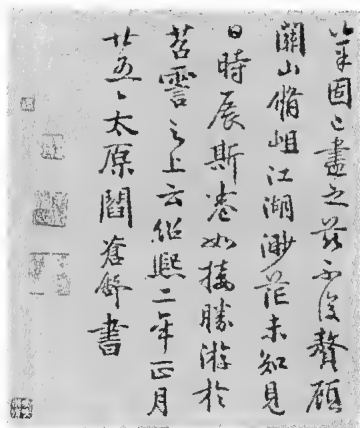 筆固已盡之茲不復贅顧
關山脩岨江湖渺茫未知見
日時展斯卷如接勝游於
苕霅之上云紹熙二年正月
廿五日太原閻蒼舒書